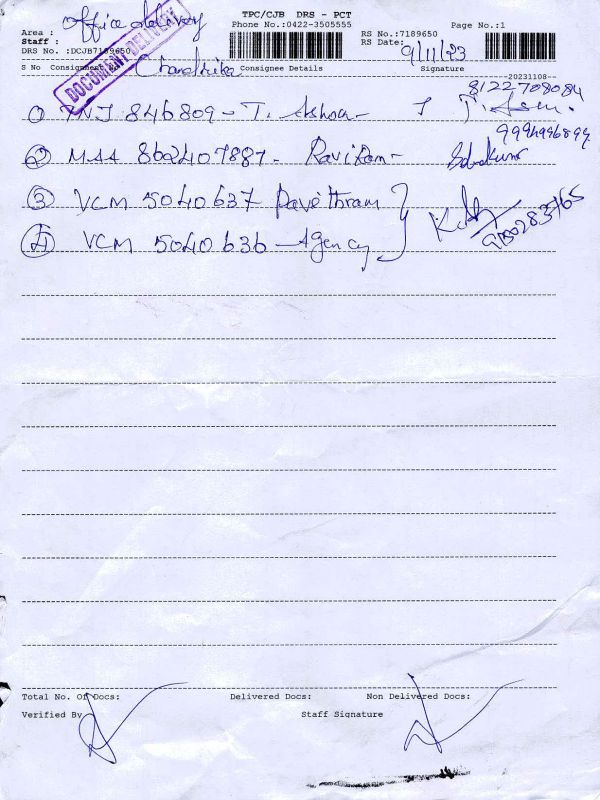 Office delivery
TPC/CJB DRS - PCT
Page No.:1
Area :
Phone No.:0422-3505555
RS No.:7189650
Staff :
RS Date: 9/11/23
DRS No. :DCJB7189650
DOCUMENT DELIVERY
S No Consignment No Chandrika Consignee Details Signature
20231108
8122708084
1 TNJ 846809 - T. Ashok
9994996899
2 MAA 862407887 - Raviram
3 VCM 5040637 Pavithram
4 VCM 5040636 - Agency
Total No. Of Docs: Delivered Docs: Non Delivered Docs:
Verified By Staff Signature